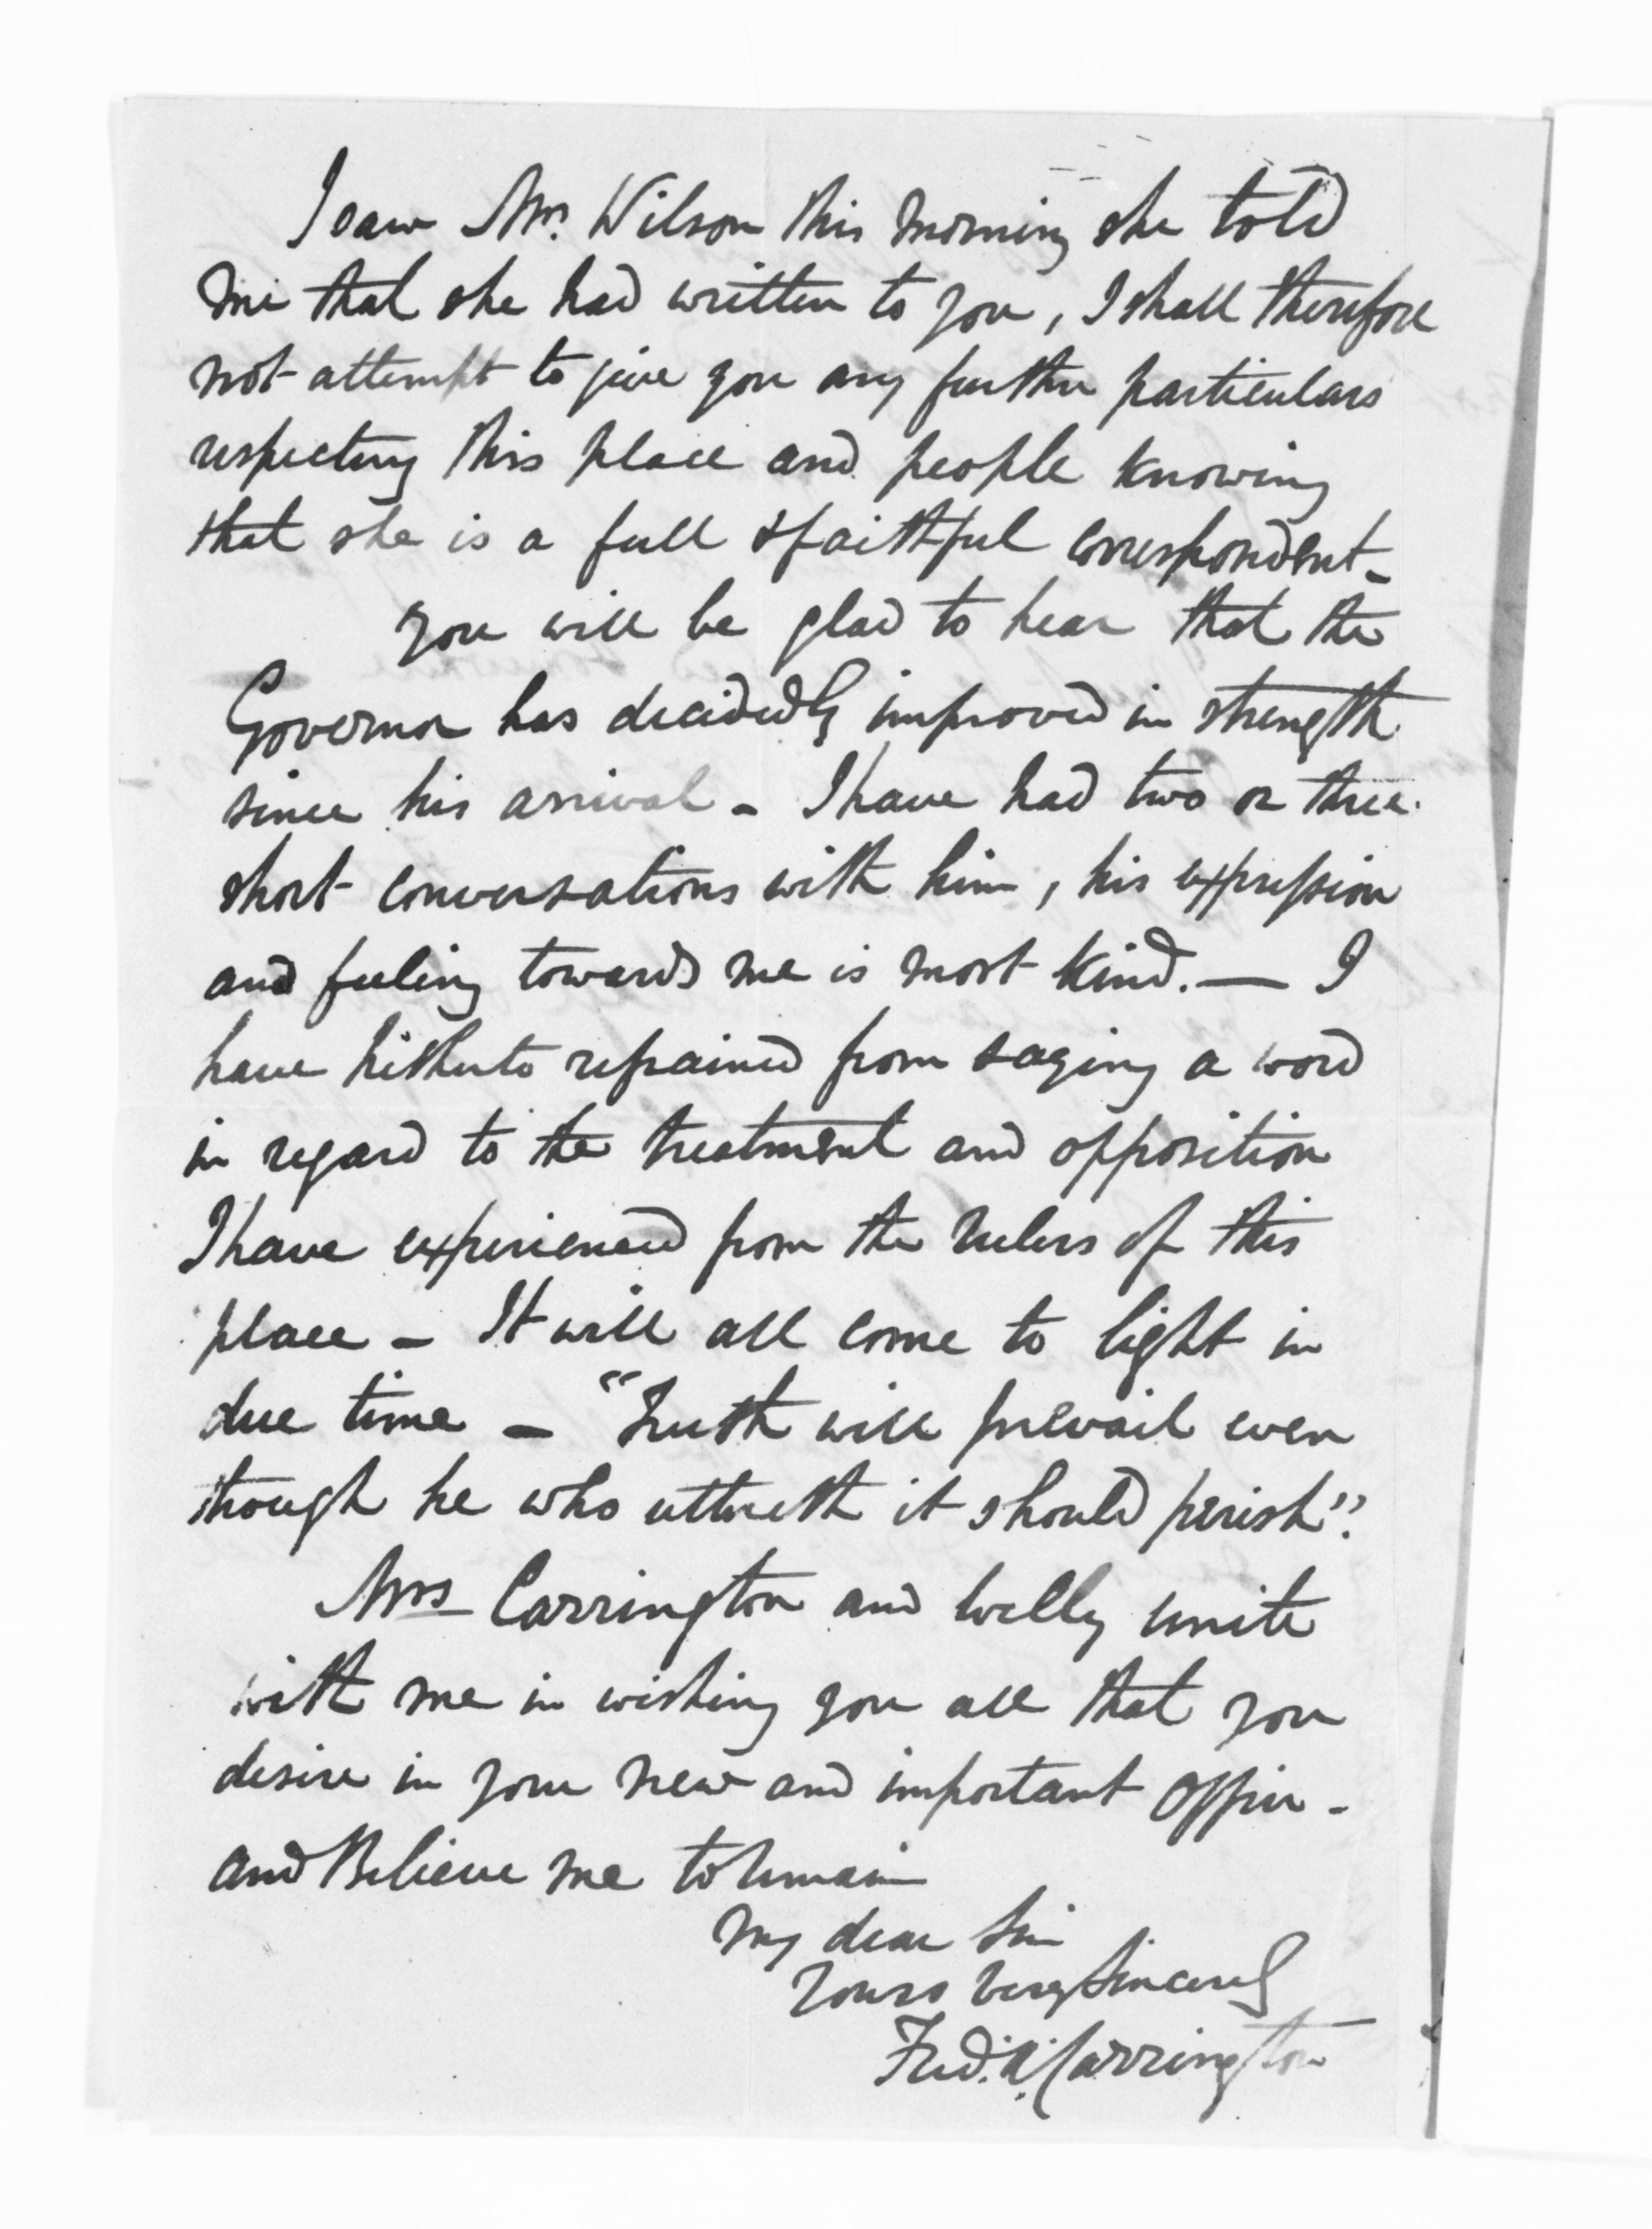 I saw Mrs. Wilson this morning she told
me that she had written to you, I shall therefore
not attempt to give you any further particulars
respecting this place and people knowing
that she is a full & faithful correspondent -
you will be glad to hear that the
Governor has decidedly improved in strength
since his arrival - I have had two or three
short conversations with him, his expression
and feeling towards me is most kind. — I
have hitherto refrained from saying a word
in regard to the treatment and opposition
I have experienced from the rulers of this
place - It will all come to light in
due time - "Truth will prevail even
though he who uttereth it should perish".
Mrs Carrington and Welly unite
with me in wishing you all that you
desire in your new and important office -
and Believe me to remain
My dear Sir
Yours very Sincerely
Fred. A. Carrington